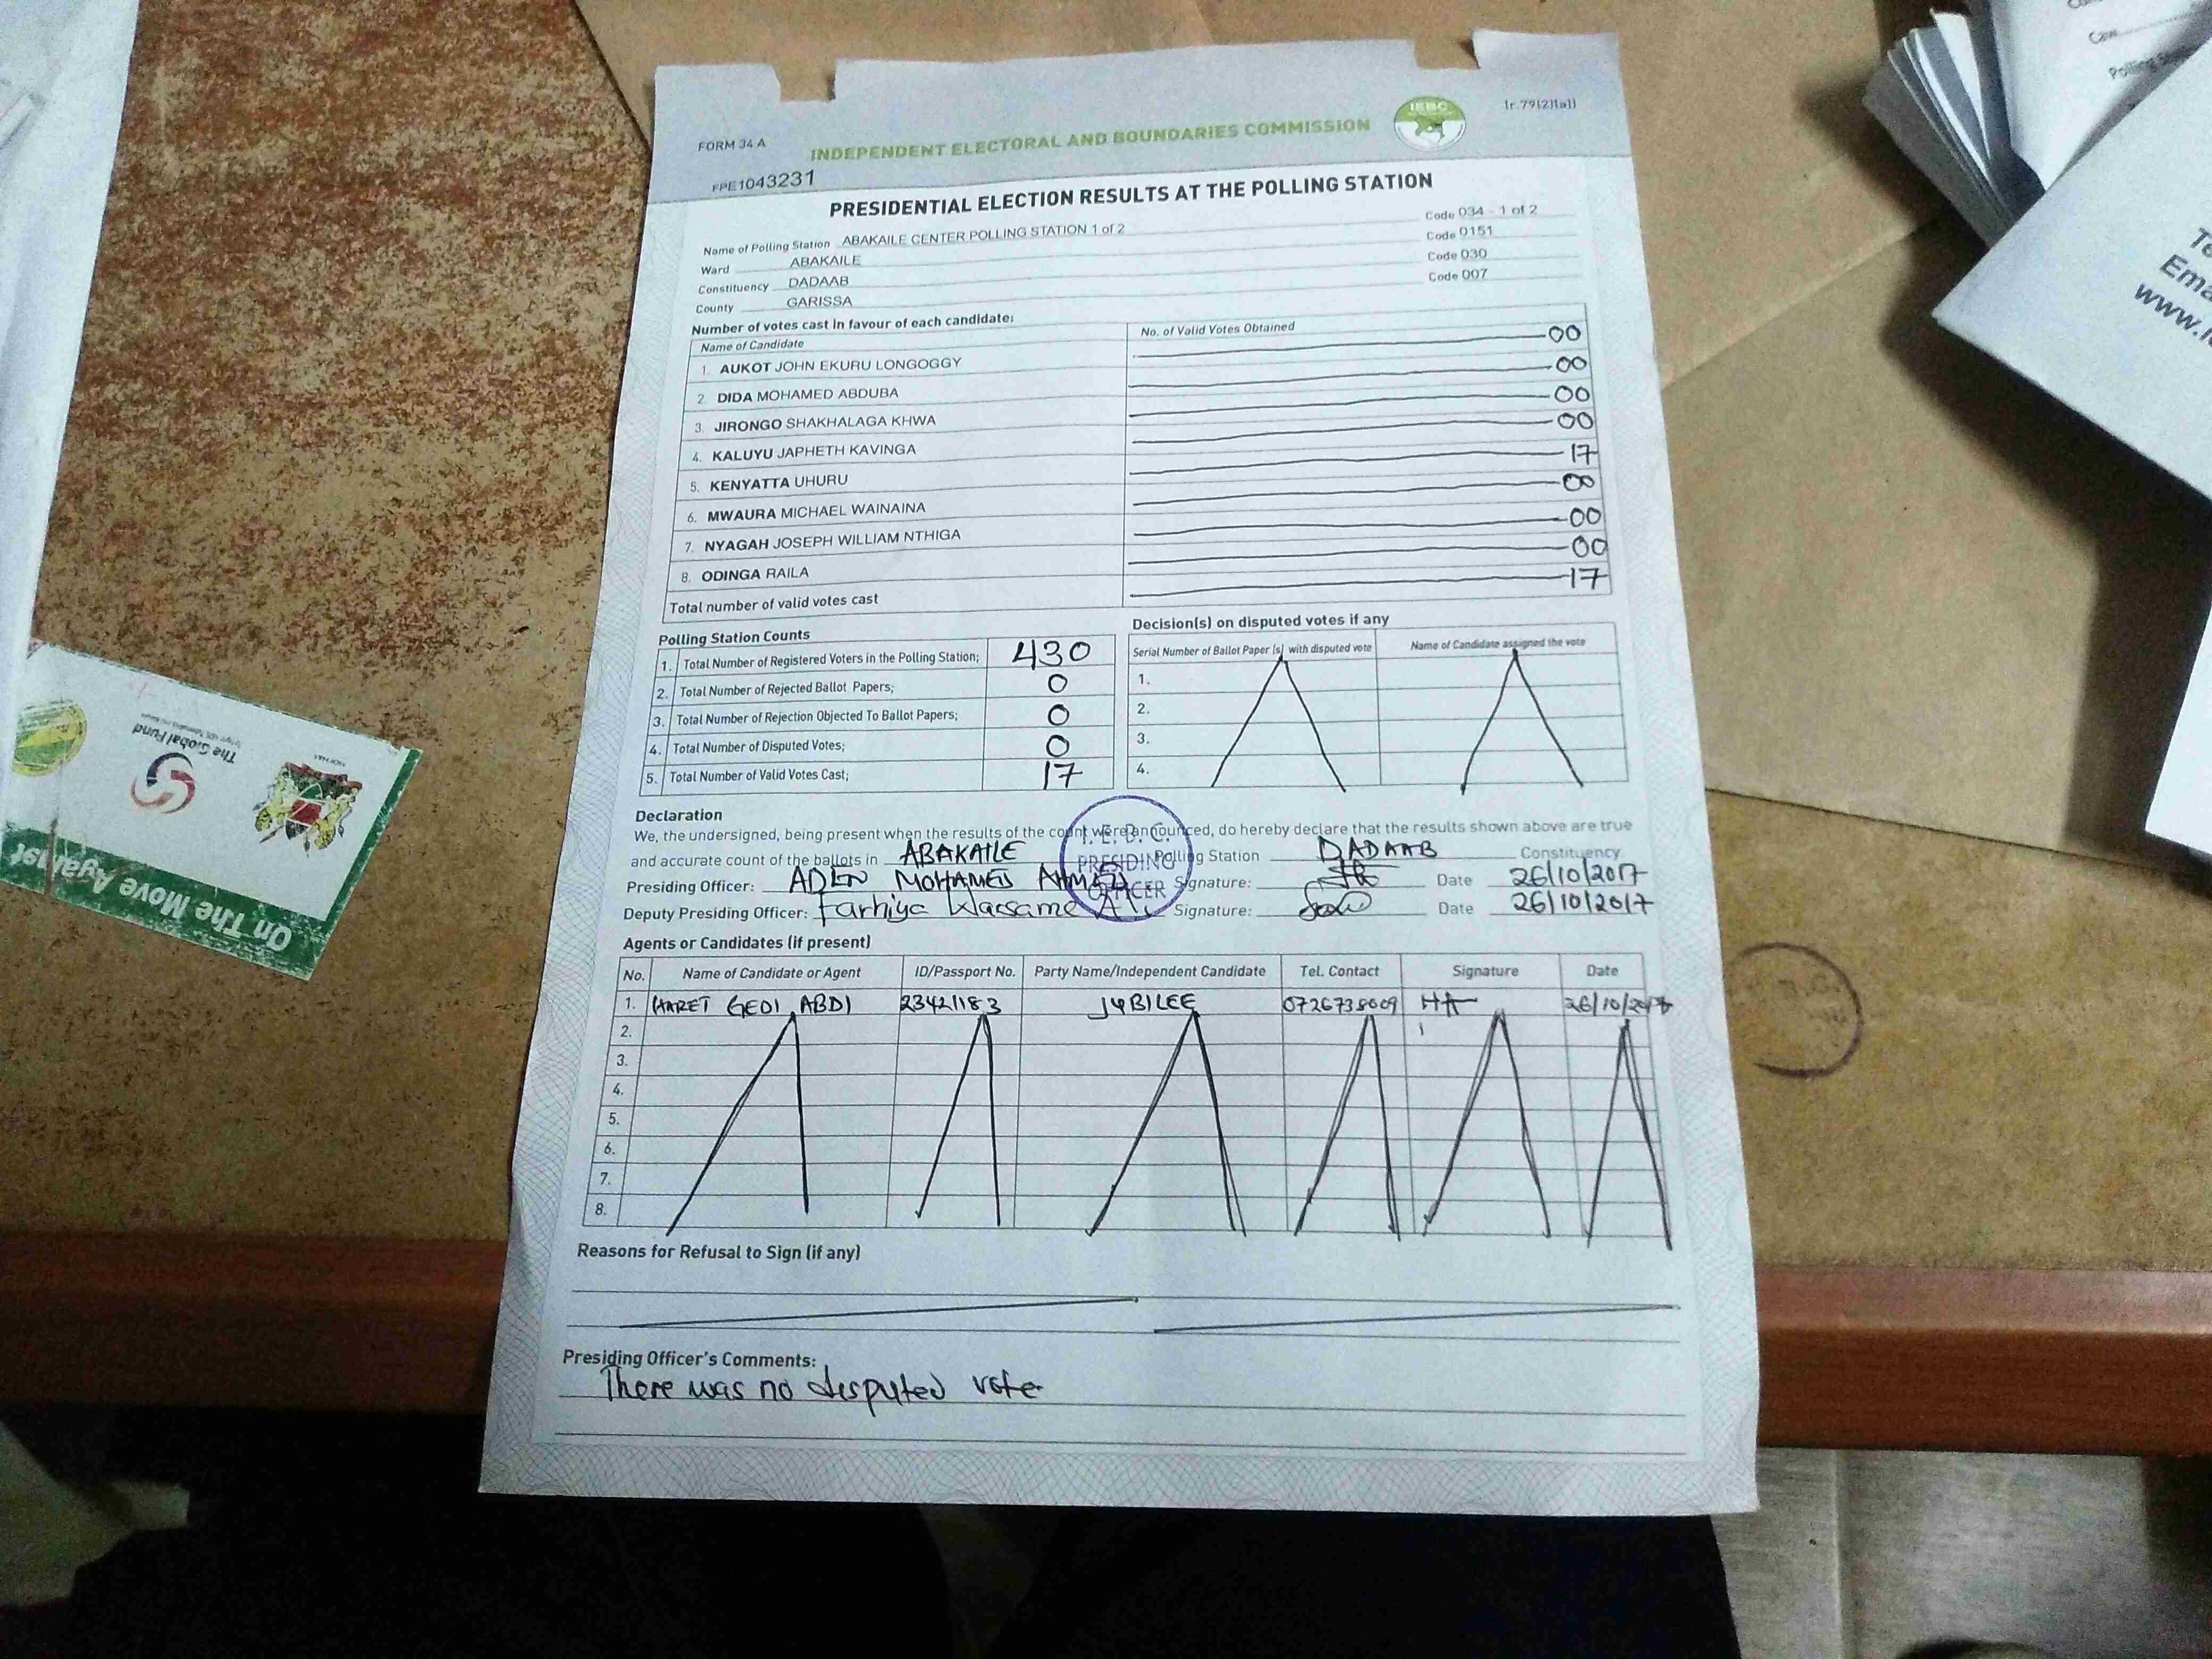 FORM 34 A
INDEPENDENT ELECTORAL AND BOUNDARIES COMMISSION
IEBC
(r.79(2)(a))
FPE1043231
PRESIDENTIAL ELECTION RESULTS AT THE POLLING STATION
Name of Polling Station ABAKAILE CENTER POLLING STATION 1 of 2 Code 034 - 1 of 2
Ward ABAKAILE Code 0151
Constituency DADAAB Code 030
County GARISSA Code 007
Number of votes cast in favour of each candidate:
Name of Candidate No. of Valid Votes Obtained
1. AUKOT JOHN EKURU LONGOGGY 00
2. DIDA MOHAMED ABDUBA 00
3. JIRONGO SHAKHALAGA KHWA 00
4. KALUYU JAPHETH KAVINGA 00
5. KENYATTA UHURU 17
6. MWAURA MICHAEL WAINAINA 00
7. NYAGAH JOSEPH WILLIAM NTHIGA 00
8. ODINGA RAILA 00
Total number of valid votes cast 17
Polling Station Counts
1. Total Number of Registered Voters in the Polling Station; 430
2. Total Number of Rejected Ballot Papers; 0
3. Total Number of Rejection Objected To Ballot Papers; 0
4. Total Number of Disputed Votes; 0
5. Total Number of Valid Votes Cast; 17
Decision(s) on disputed votes if any
Serial Number of Ballot Paper (s) with disputed vote Name of Candidate assigned the vote
1.
2.
3.
4.
Declaration
We, the undersigned, being present when the results of the count were announced, do hereby declare that the results shown above are true
and accurate count of the ballots in ABAKAILE Polling Station DADAAB Constituency
Presiding Officer: ADEN MOHAMED AHMED Signature: Date 26/10/2017
Deputy Presiding Officer: Farhiya Warsame Ali Signature: Date 26/10/2017
I.E.B.C.
PRESIDING
OFFICER
Agents or Candidates (if present)
No. Name of Candidate or Agent ID/Passport No. Party Name/Independent Candidate Tel. Contact Signature Date
1. HARET GEDI ABDI 23421183 JUBILEE 0726738009 HA 26/10/2017
2.
3.
4.
5.
6.
7.
8.
Reasons for Refusal to Sign (if any)
Presiding Officer's Comments:
There was no disputed vote
The Global Fund
On The Move Against
Caw
Polling
Ema
www.